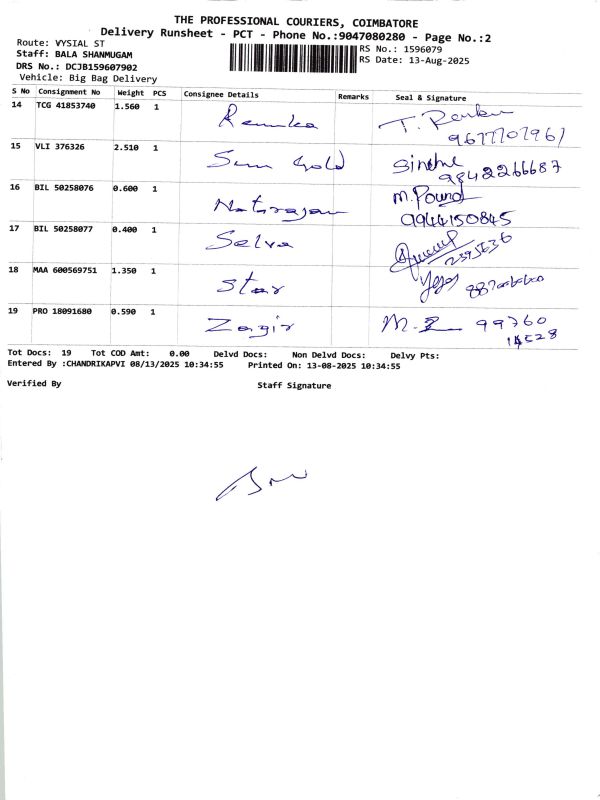 THE PROFESSIONAL COURIERS, COIMBATORE
Delivery Runsheet - PCT - Phone No.:9047080280 - Page No.:2
Route: VYSIAL ST
Staff: BALA SHANMUGAM
DRS No.: DCJB159607902
Vehicle: Big Bag Delivery
RS No.: 1596079
RS Date: 13-Aug-2025
S No Consignment No Weight PCS Consignee Details Remarks Seal & Signature
14 TCG 41853740 1.560 1 Renuka T. 9677707967
15 VLI 376326 2.510 1 Sun Gold 9842266687
16 BIL 50258076 0.600 1 Natarajan M.
9944150845
17 BIL 50258077 0.400 1 Selva
18 MAA 600569751 1.350 1 Star
19 PRO 18091680 0.590 1 Zagir M. 99760
Tot Docs: 19 Tot COD Amt: 0.00 Delvd Docs: Non Delvd Docs: Delvy Pts:
Entered By :CHANDRIKAPVI 08/13/2025 10:34:55 Printed On: 13-08-2025 10:34:55
Verified By Staff Signature